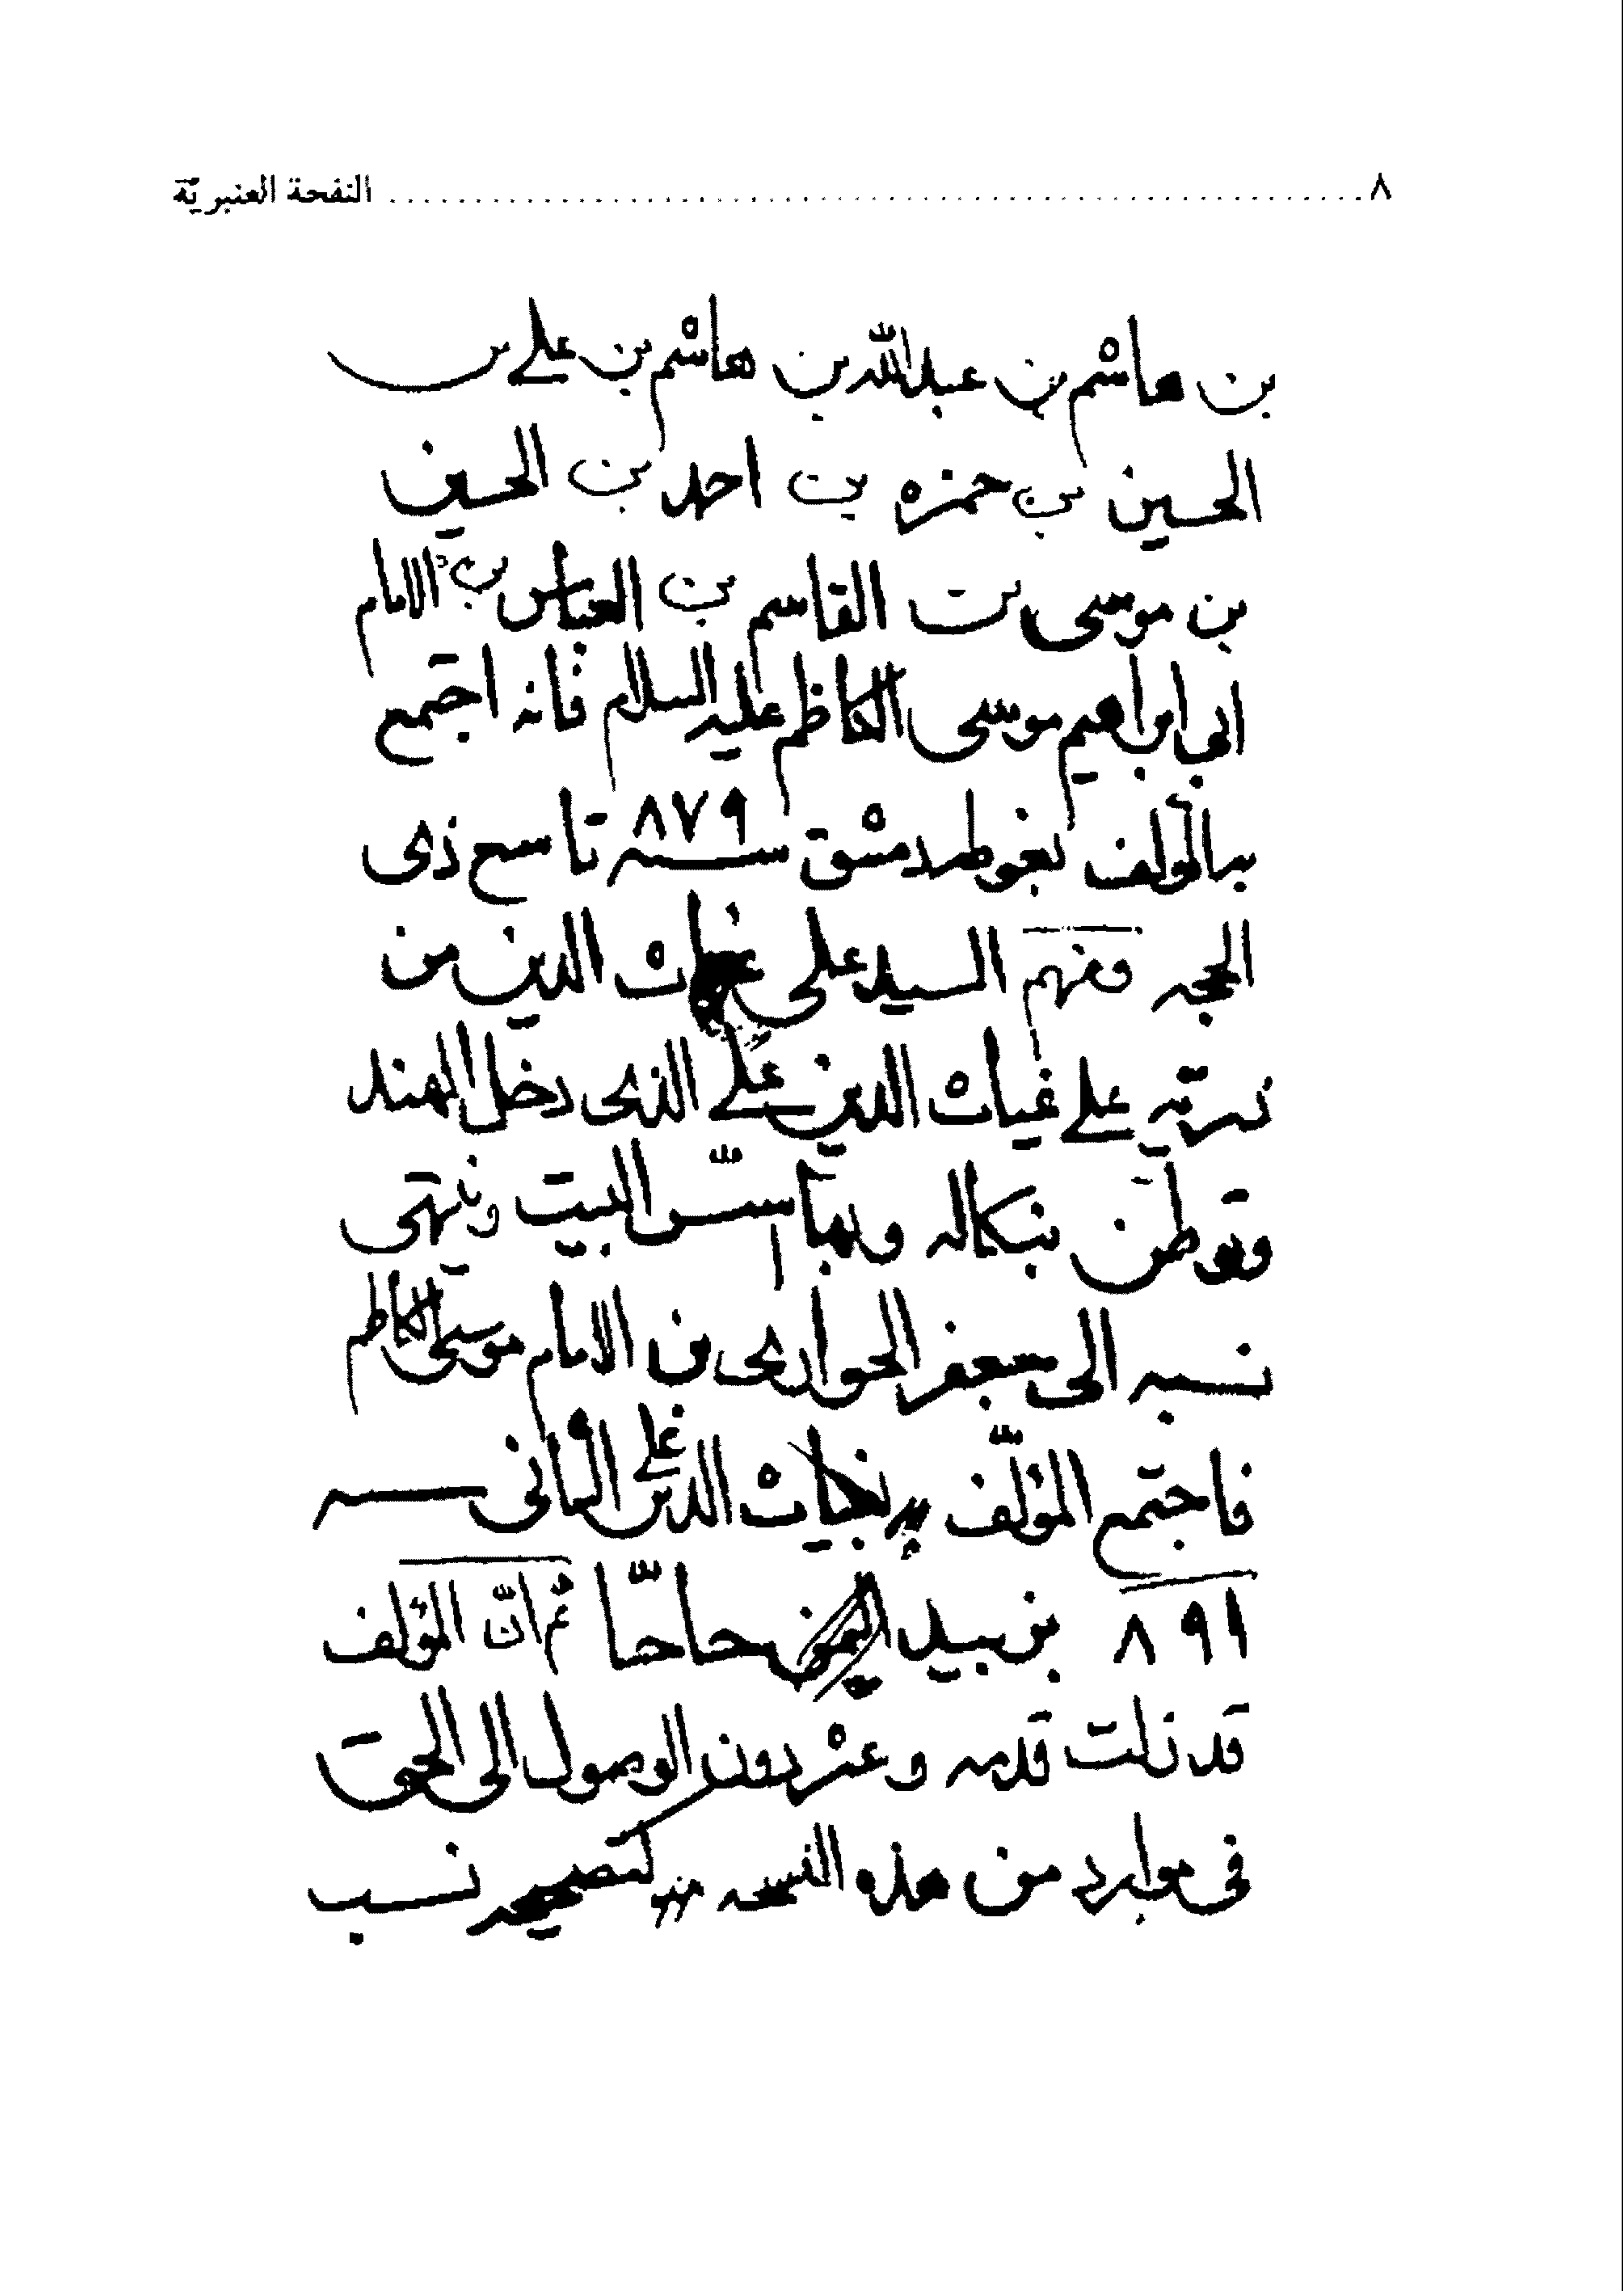 ٨ ........ النفحة العنبريّة
بن هاشم بن عبد اللّه بن هاشم بن علي بن
الحسين بن حمزه بن احمد بن الحسين
بن موسى بن القاسم بن العباس بن الامام
ابي ابراهيم موسى الكاظم عليه السلام فانه اجتمع
بالمؤلف بغوطه دمشق سنه ٨٧٩ تاسع ذى
الحجه ومنهم السيد على غياث الدين من
ذريّة علي غياث الدين علي الذى دخل الهند
وتوطّن بنكاله وبها اسّس البيت وينتهى
نسبه الى جعفر الحوارى بن الامام موسى الكاظم
فاجتمع المؤلّف بغياث الدين علي الثانى سنه
٨٩١ بزبيد اليمن حاجّا ثم انّ المؤلف
قد زلت قدمه وعثر دون الوصول الى الحق
فى موارد من هذه النسخه كتصحيح نسب